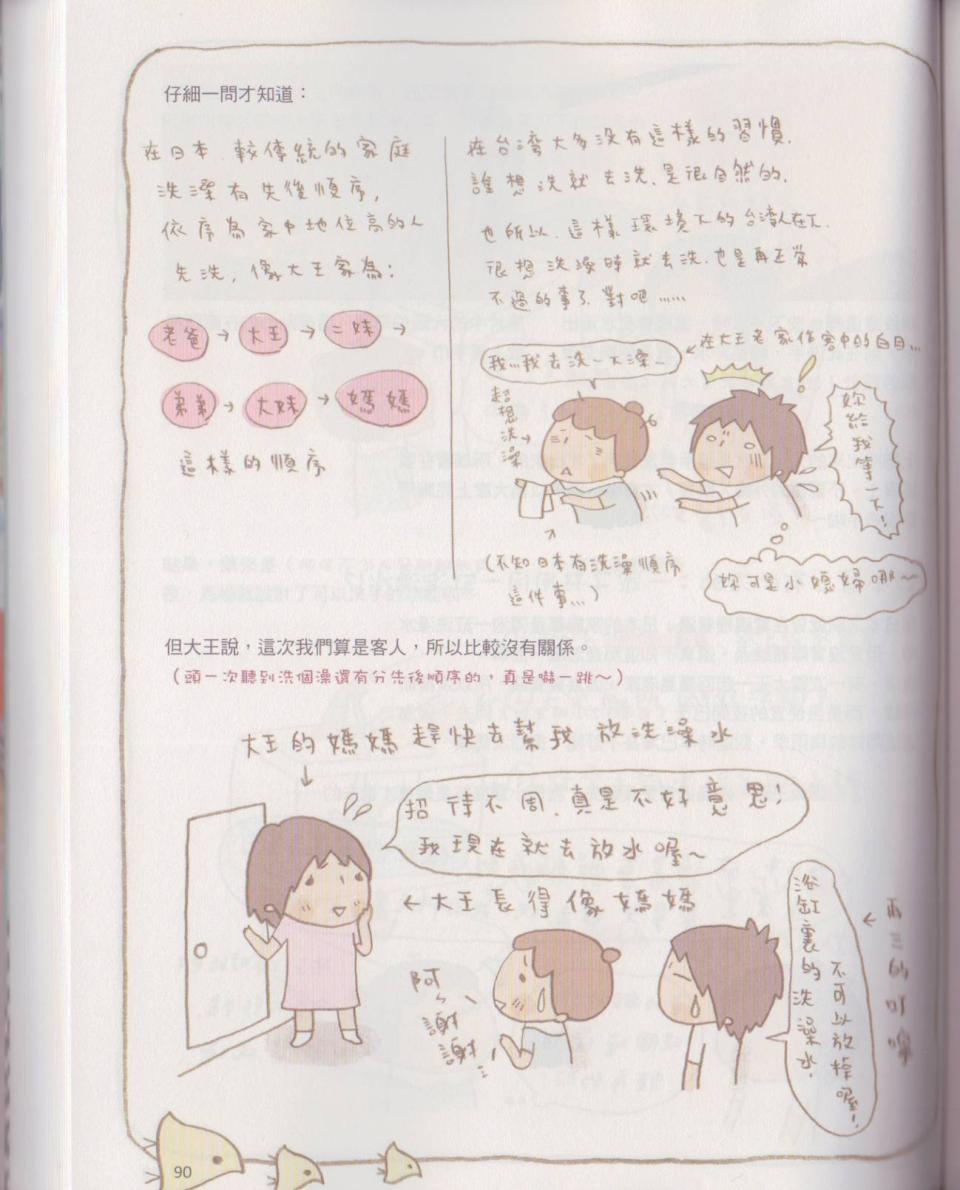 仔細一問才知道：
在日本，較傳統的家庭
洗澡有先後順序，
依序為家中地位高的人
先洗，像大王家為：
老爸→大王→二妹→
弟弟→大妹→媽媽
這樣的順序
在台灣大多沒有這樣的習慣，
誰想洗就去洗，是很自然的，
也所以，這樣環境下的台灣人在下，
很想洗澡時就去洗，也是再正常
不過的事了，對吧……
←在大王老家作客中的白目…
我…我去洗一下澡～
超想洗澡→
妳給我等一下！
妳可是小媳婦哪～
（不知日本有洗澡順序
這件事…）
但大王說，這次我們算是客人，所以比較沒有關係。
（頭一次聽到洗個澡還有分先後順序的，真是嚇一跳～）
大王的媽媽趕快去幫我放洗澡水
招待不周，真是不好意思，
我現在就去放水喔～
←大王長得像媽媽
阿～
謝謝…
浴缸裏的洗澡水，
不可以放掉喔！
←再三的叮嚀
90